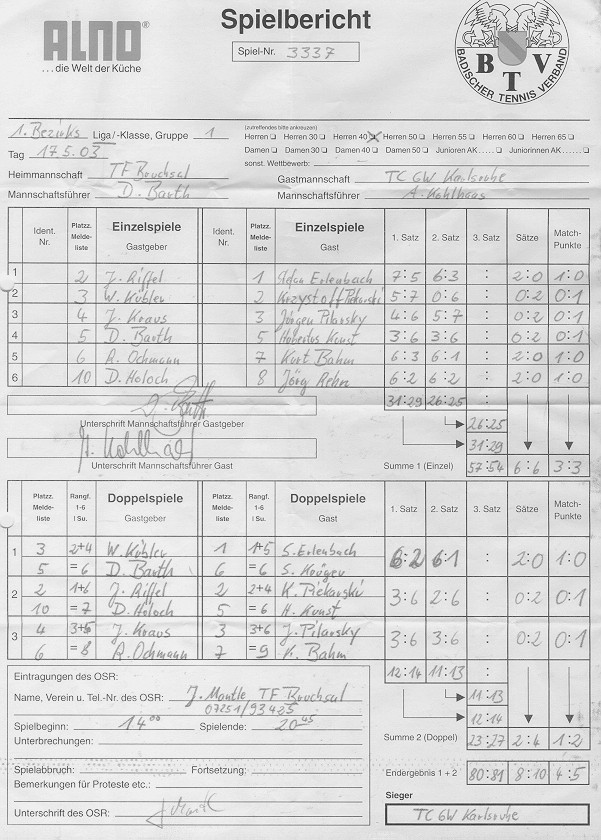 ALNO®
...die Welt der Küche
Spielbericht
Spiel-Nr. 3337
BTV
BADISCHER TENNIS VERBAND
(zutreffendes bitte ankreuzen)
1. Bezirks Liga/-Klasse, Gruppe 1
Herren Herren 30 Herren 40 Herren 50 Herren 55 Herren 60 Herren 65
Tag 17.5.03
Damen Damen 30 Damen 40 Damen 50 Junioren AK..... Juniorinnen AK.....
sonst. Wettbewerb:
Heimmannschaft TF Bruchsal
Gastmannschaft TC GW Karlsruhe
Mannschaftsführer D. Barth
Mannschaftsführer A. Kohlhaas
Ident. Nr. Platzz. Melde- liste Einzelspiele Gastgeber Ident. Nr. Platzz. Melde- liste Einzelspiele Gast 1. Satz 2. Satz 3. Satz Sätze Match- Punkte
1 2 J. Riffel 1 Stefan Erlenbach 7:5 6:3 : 2:0 1:0
2 3 W. Kübler 2 Krzystoff Piekarski 5:7 0:6 : 0:2 0:1
3 4 J. Kraus 3 Jürgen Pilarsky 4:6 5:7 : 0:2 0:1
4 5 D. Barth 5 Hubertus Kunst 3:6 3:6 : 0:2 0:1
5 6 A. Ochmann 7 Kurt Bahm 6:3 6:1 : 2:0 1:0
6 10 D. Holoch 8 Jörg Rehn 6:2 6:2 : 2:0 1:0
31:29 26:25
Unterschrift Mannschaftsführer Gastgeber
26:25
31:29
Unterschrift Mannschaftsführer Gast
Summe 1 (Einzel) 57:54 6:6 3:3
Platzz. Melde- liste Rangf. 1-6 I Su. Doppelspiele Gastgeber Platzz. Melde- liste Rangf. 1-6 I Su. Doppelspiele Gast 1. Satz 2. Satz 3. Satz Sätze Match- Punkte
1 3 2+4 W. Kübler 1 1+5 S. Erlenbach 6:2 6:1 : 2:0 1:0
5 =6 D. Barth 6 =6 S. Krüger
2 2 1+6 J. Riffel 2 2+4 K. Piekarski 3:6 2:6 : 0:2 0:1
10 =7 D. Holoch 5 =6 H. Kunst
3 4 3+5 J. Kraus 3 3+6 J. Pilarsky 3:6 3:6 : 0:2 0:1
6 =8 A. Ochmann 7 =9 K. Bahm
12:14 11:13
Eintragungen des OSR:
11:13
Name, Verein u. Tel.-Nr. des OSR: J. Mantle TF Bruchsal
07251/93425
12:14
Spielbeginn: 14 00 Spielende: 20 45
Unterbrechungen:
Summe 2 (Doppel) 23:27 2:4 1:2
Spielabbruch: Fortsetzung:
Endergebnis 1 + 2 80:81 8:10 4:5
Bemerkungen für Proteste etc.:
Sieger
Unterschrift des OSR:
TC GW Karlsruhe